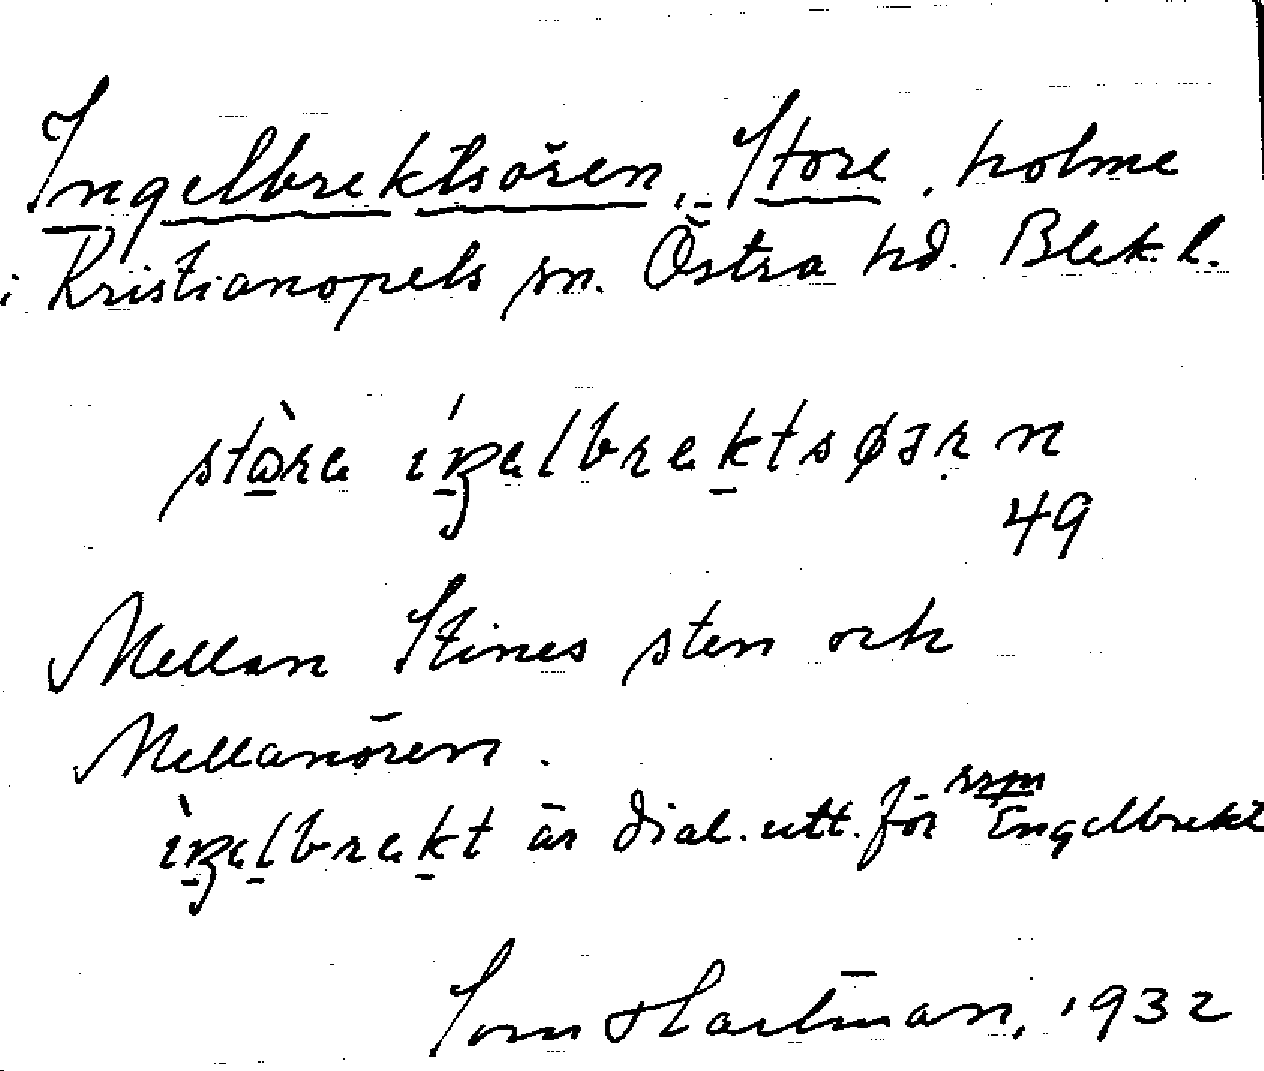 Ingelbrektsören, Store, holme
i Kristianopels sn. Östra hd. Blek. l.
stòra íŋelbrektsøɹr n
49
Mellan Stines sten och
Mellanören.
ìŋelbrekt är dial. utt. för Engelbrekt
Hartman, 1932